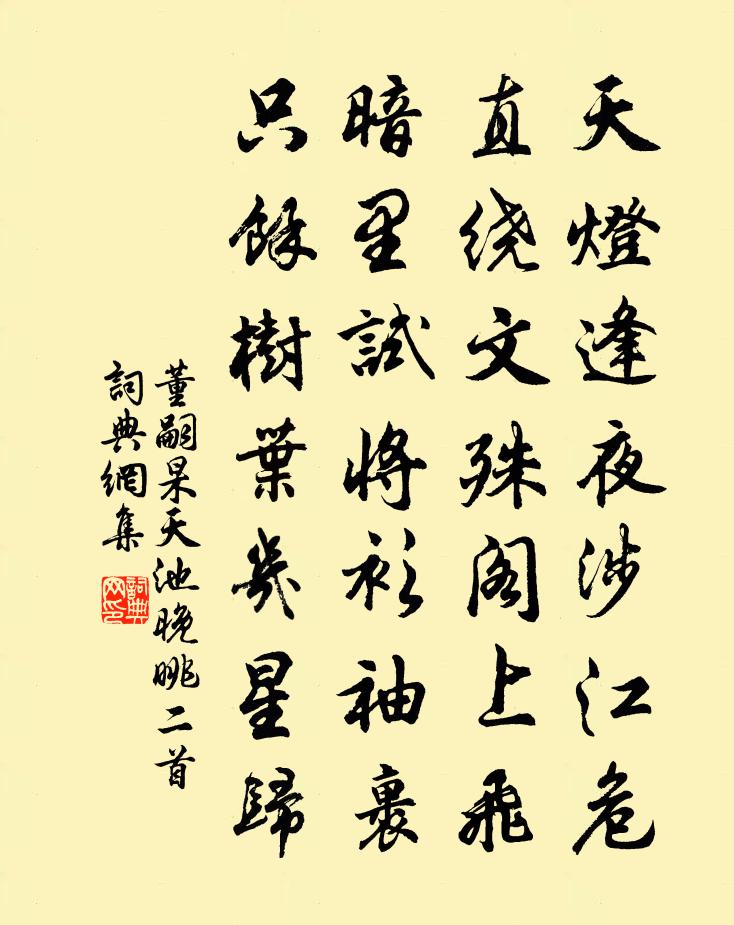 天燈逢夜涉江危
直绕文殊阁上飛
暗里試將衫袖裹
只餘樹葉幾星歸
董嗣杲天池晚眺二首
詞典網集
詞典网印